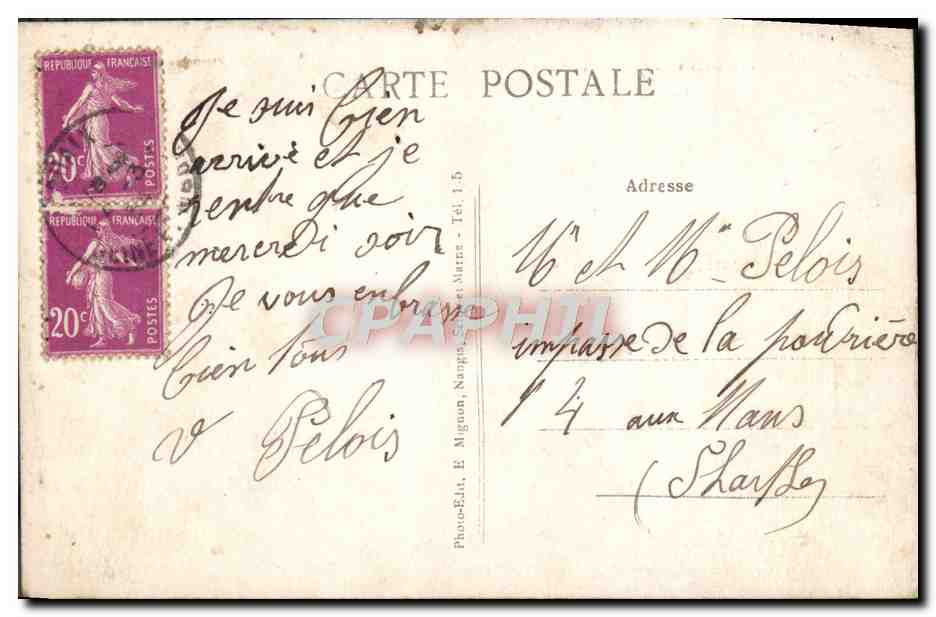 CARTE POSTALE
RÉPUBLIQUE FRANÇAISE
20c
POSTES
RÉPUBLIQUE FRANÇAISE
20c
POSTES
Je suis bien
arrivé et je
rentre que
mercredi soir
Je vous enbrasse
bien tous
V Pelois
Photo-Edit. E Mignon, Nangis, Seine et Marne - Tél. 1.5
Adresse
Mr et Mme Pelois
impasse de la poudrière
4 aux Mans
(Sharthe)
CPAPHIL